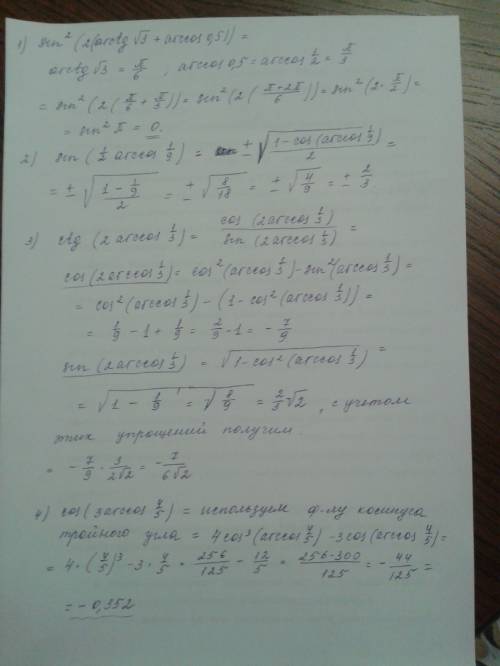 1) sin² (2(arcctg √3 + arccos 0,5)) =
arcctg √3 = π/6 , arccos 0,5 = arccos 1/2 = π/3
= sin² (2 (π/6 + π/3)) = sin² (2 (π+2π/6)) = sin² (2 · π/2) =
= sin² π = 0.
2) sin (1/2 arccos 1/9) = ± √(1 - cos (arccos 1/9)/2) =
= ± √(1 - 1/9/2) = ± √(8/18) = ± √(4/9) = ± 2/3
3) ctg (2 arccos 1/3) = cos (2 arccos 1/3)/sin (2 arccos 1/3) =
cos (2 arccos 1/3) = cos² (arccos 1/3) - sin² (arccos 1/3) =
= cos² (arccos 1/3) - (1 - cos² (arccos 1/3)) =
= 1/9 - 1 + 1/9 = 2/9 - 1 = - 7/9
sin (2 arccos 1/3) = √(1 - cos² (arccos 1/3)) =
= √(1 - 1/9) = √(8/9) = 2/3 √2 , с учетом
этих упрощений получим
= - 7/9 · 3/2√2 = - 7/6√2
4) cos (3 arccos 4/5) = используем ф-лу косинуса
тройного угла = 4 cos³ (arccos 4/5) - 3 cos (arccos 4/5) =
= 4 · (4/5)³ - 3 · 4/5 = 256/125 - 12/5 = 256 - 300/125 = - 44/125 =
= - 0,352